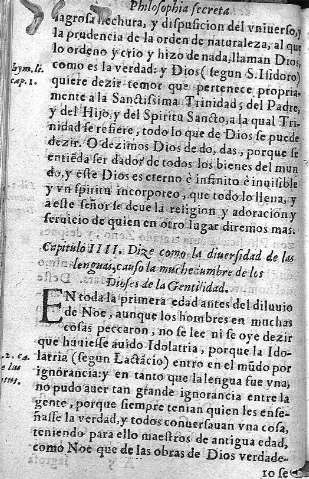 Philosophia secreta
lagrosa hechura, y dispusicion del vniuerso, y
la prudencia de la orden de naturaleza, al que
lo ordeno y crio y hizo de nada, llaman Dios,
como es la verdad: y Dios (segun S. Isidoro)
hym. li.
cap. 1.
quiere dezir temor que pertenece propria-
mente a la Sanctissima Trinidad, del Padre,
y del Hijo, y del Spiritu Sancto, a la qual Tri-
nidad se refiere, todo lo que de Dios se puede
dezir. O dezimos Dios de do, das, porque se
entiēda ser dador de todos los bienes del mun
do, y este Dios es eterno è infinito è inuisible
y vn spiritu incorporeo, que todo lo llena, y
a este señor se deue la religion y adoracion y
seruicio de quien en otro lugar diremos mas.
Capitulo IIII. Dize como la diuersidad de las
lenguas, causo la muchedumbre de los
Dioses de la Gentilidad.
EN toda la primera edad antes del diluuio
de Noe, aunque los hombres en muchas
cosas peccaron, no se lee ni se oye dezir
que huuiesse auido Idolatria, porque la Ido-
latria (segun Lactācio) entro en el mūdo por
2. ca.
ignorancia: y en tanto que la lengua fue vna,
no pudo auer tan grande ignorancia entre la
gente, porque siempre tenian quien les ense-
ñasse la verdad, y todos conuersauan vna cosa,
teniendo para ello maestros de antigua edad,
como Noe que de las obras de Dios verdade-
ro se